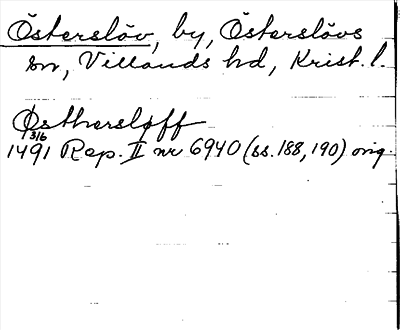 Österslöv, by, Österslövs
sn, Villands hd, Krist. l.
Østhersløff
1491 3/6 Rep. II nr 6940 (ss. 188, 190) orig.